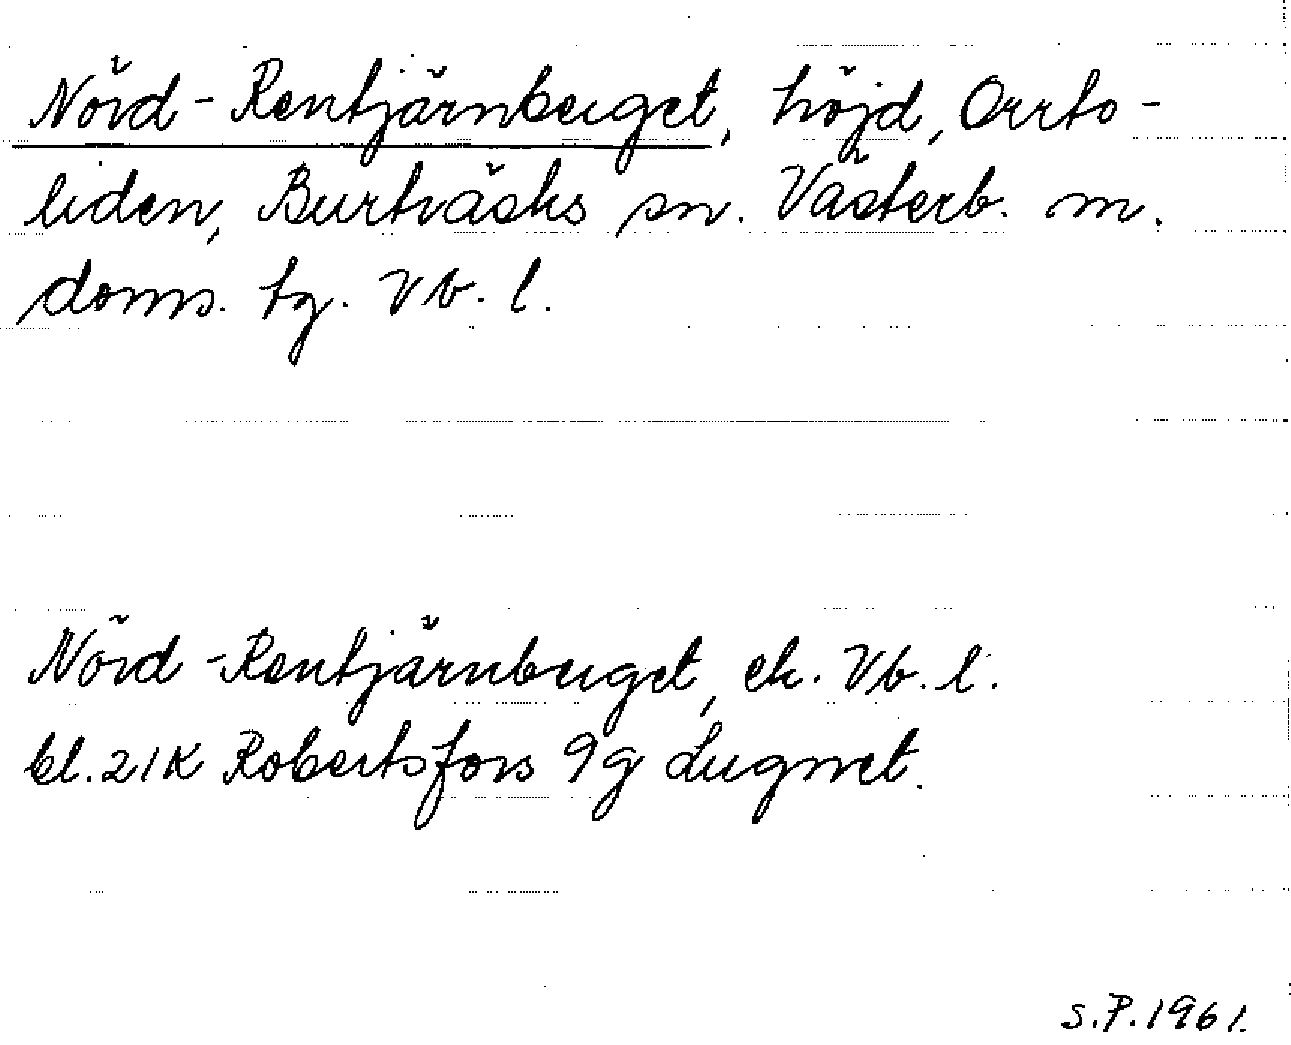 Nörd-Rentjärnberget, höjd, Orrto-
liden, Burträsks sn. Västerb. m.
doms. tg. Vb. l.
Nörd-Rentjärnberget, ek. Vb. l.
bl. 21K Robertsfors 9g Lugnet.
S.P. 1961.